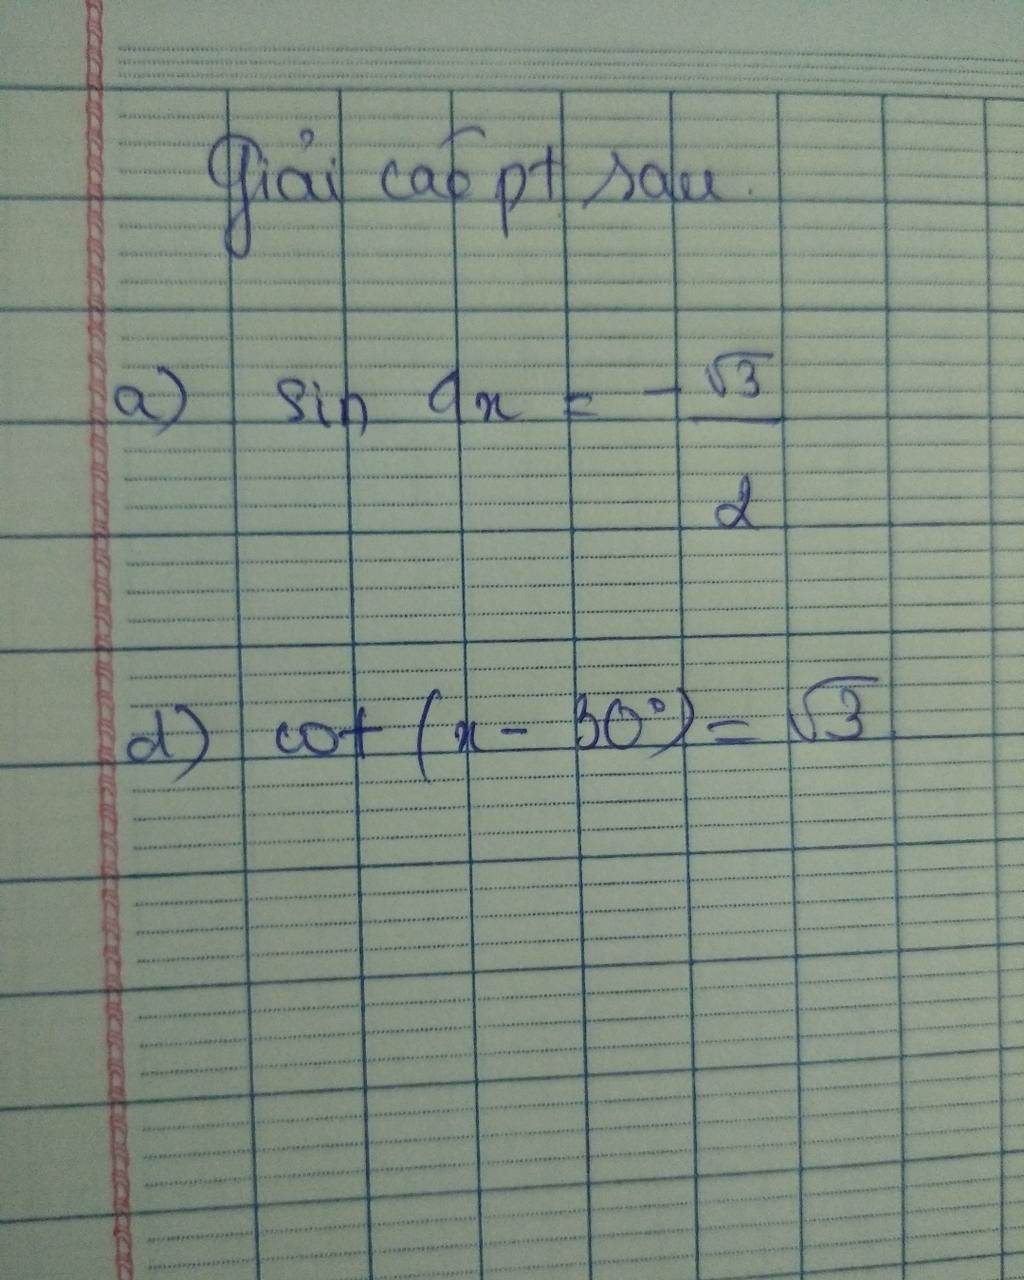 Giải các pt sau.
a) sin 9x = - √3/2
d) cot (x - 30°) = √3